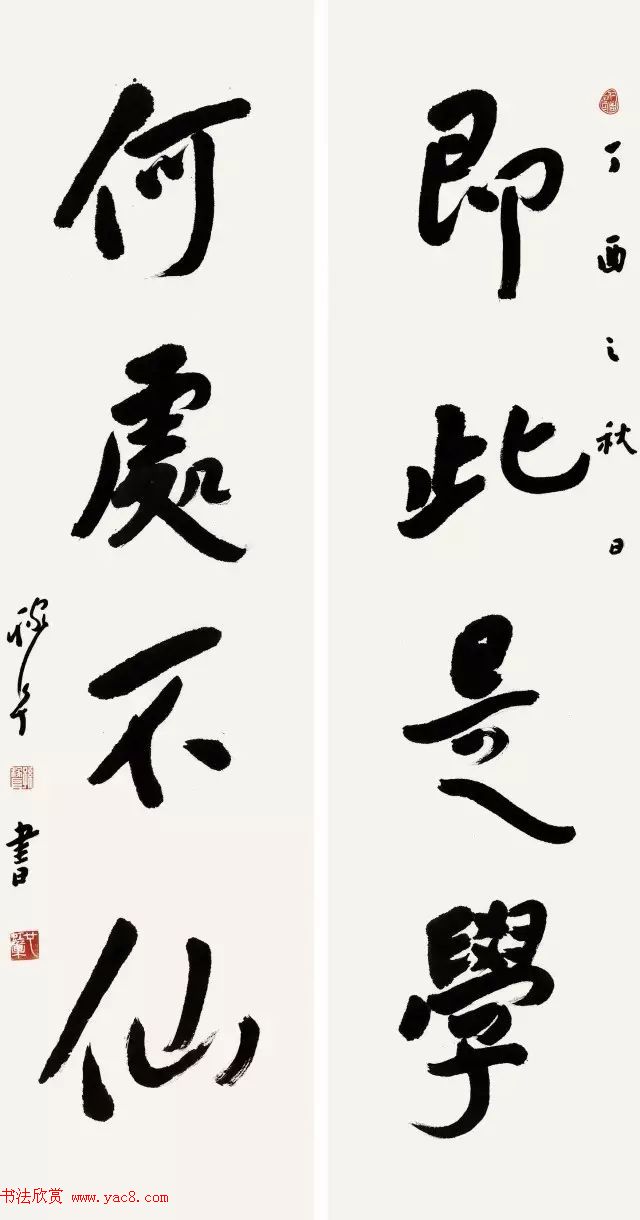 丁酉之秋日
即此是學
何處不仙
書
书法欣赏 www.yac8.com